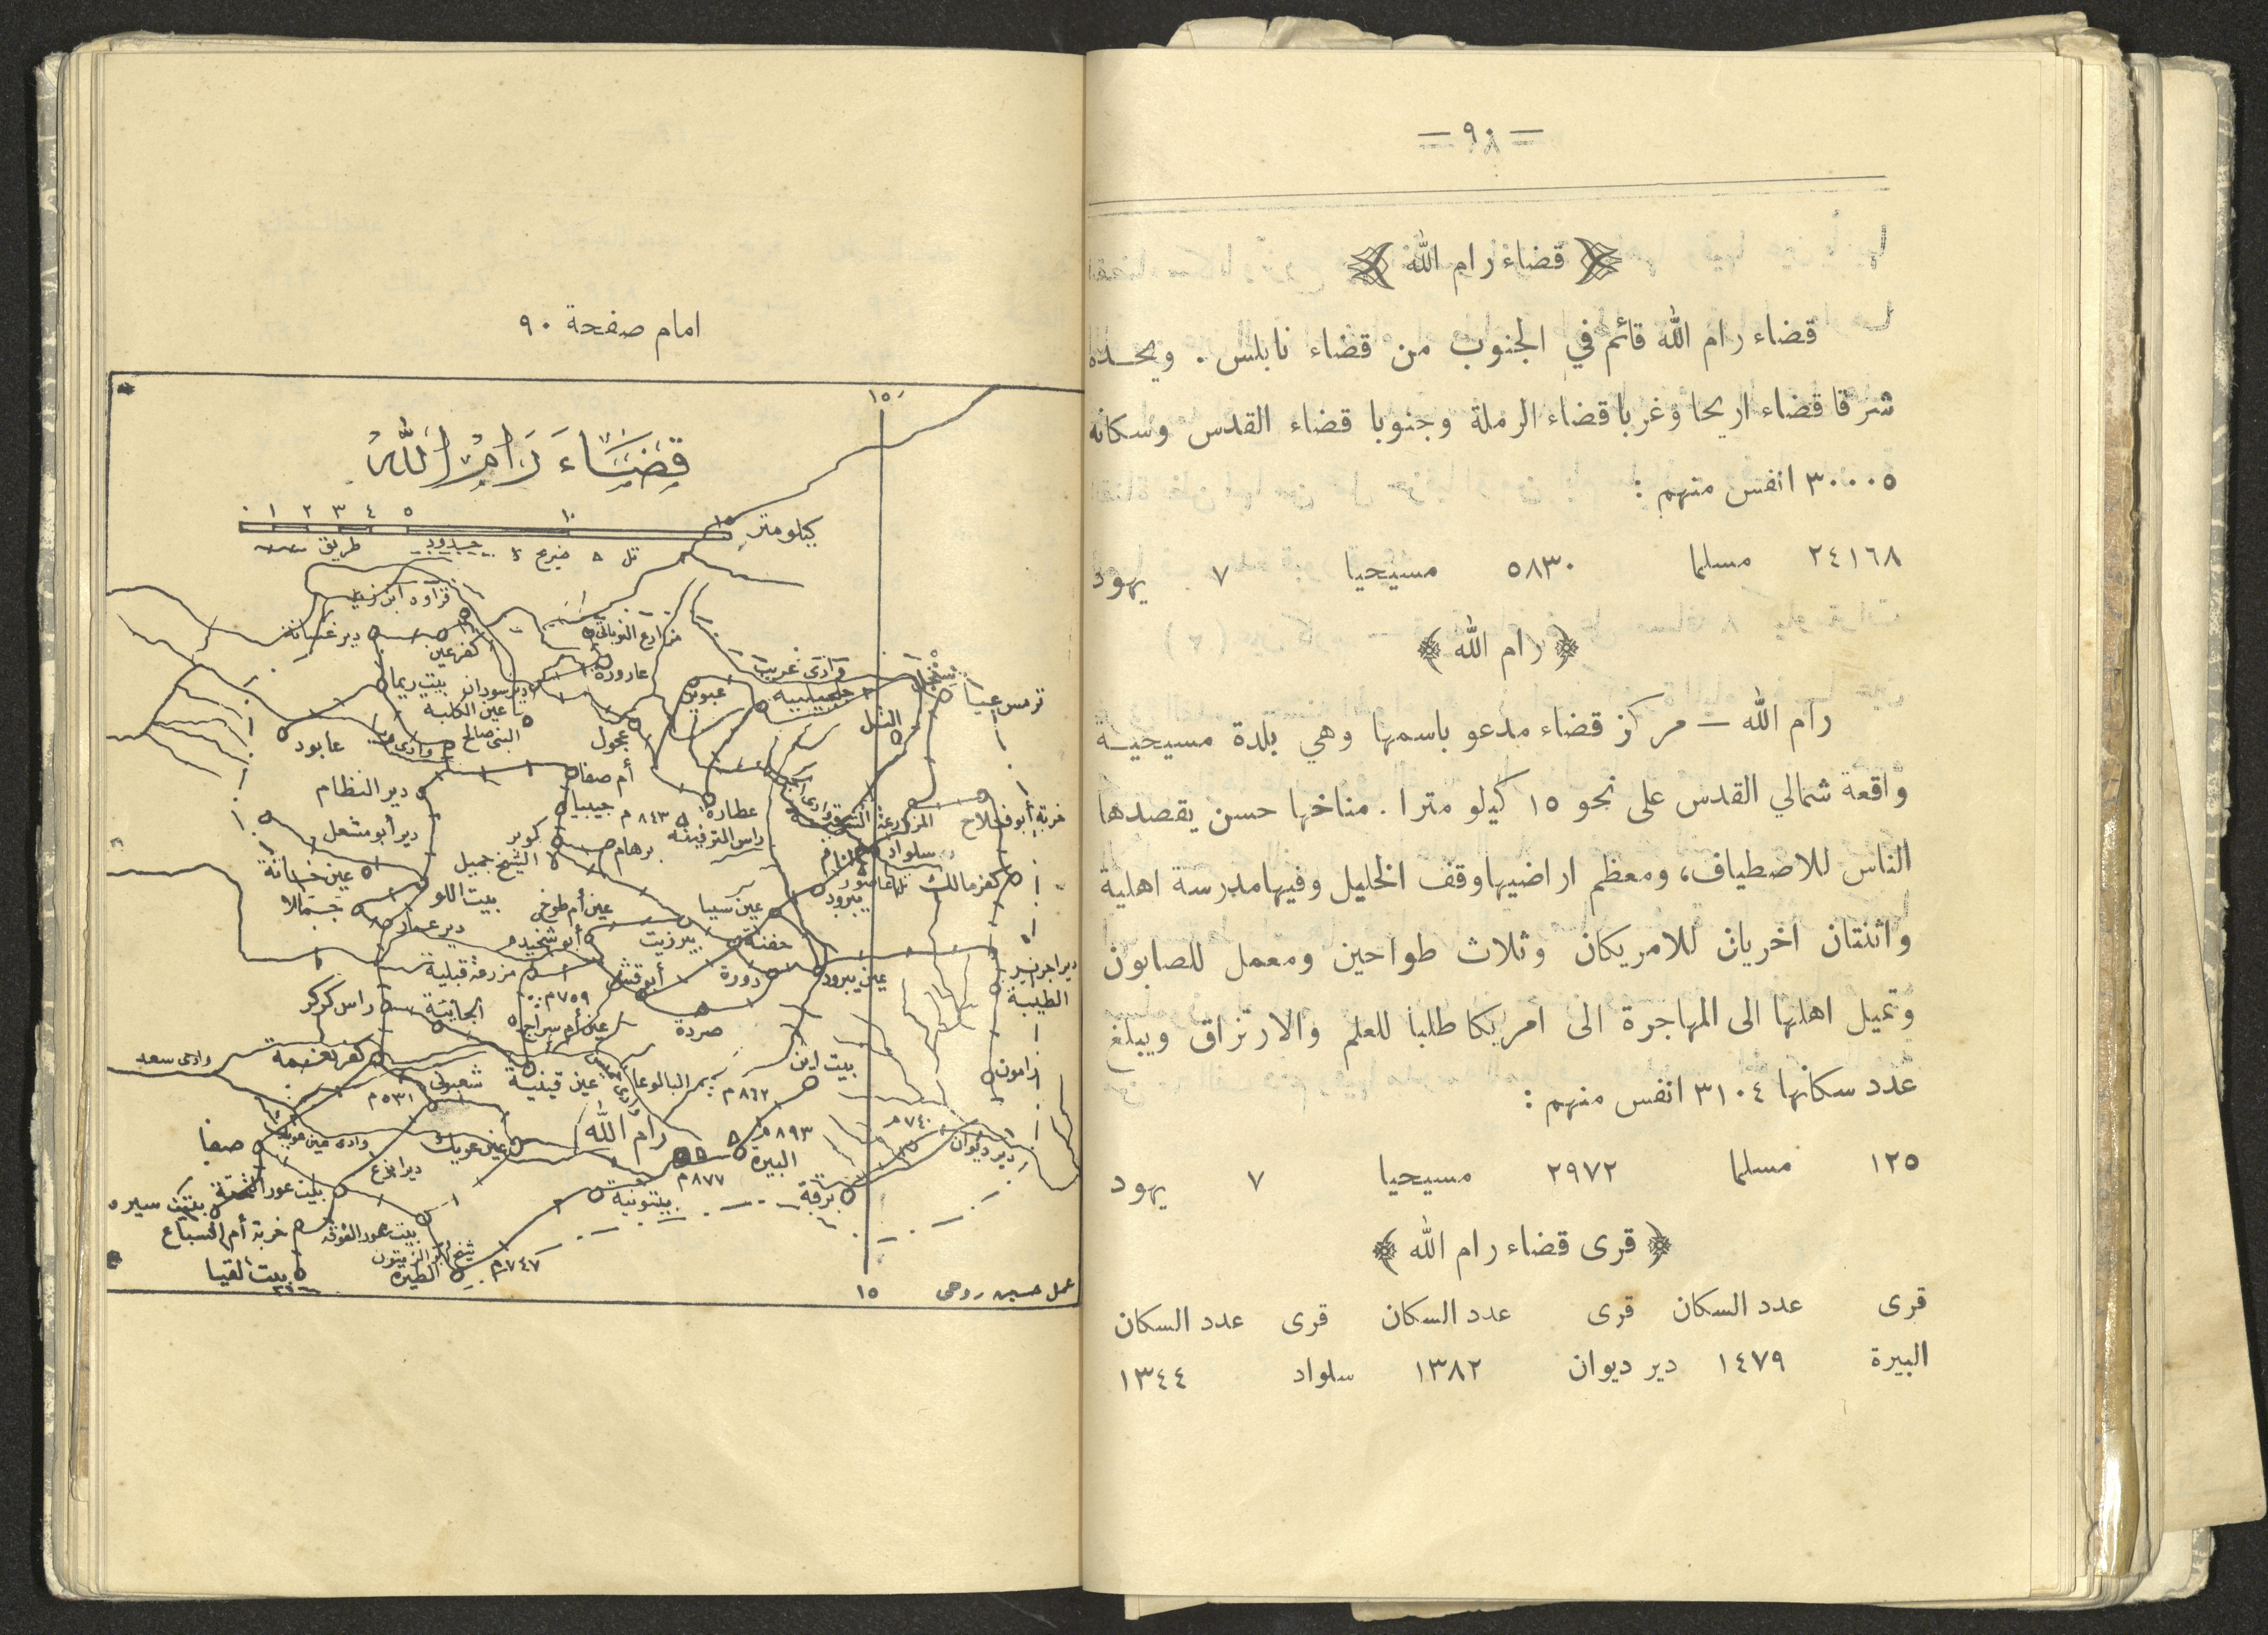 = ٩٠ =
قضاء رام الله
قضاء رام الله قائم في الجنوب من قضاء نابلس . ويحده
شرقا قضاء اريحا وغربا قضاء الرملة وجنوبا قضاء القدس وسكانه
٣٠٠٠٥ انفس منهم :
٢٤١٦٨ مسلما ٥٨٣٠ مسيحيا ٧ يهود
﴿ رام الله ﴾
رام الله — مركز قضاء مدعو باسمها وهي بلدة مسيحية
واقعة شمالي القدس على نحو ١٥ كيلو مترا . مناخها حسن يقصدها
الناس للاصطياف، ومعظم اراضيها وقف الخليل وفيها مدرسة اهلية
واثنتان اخريان للامريكان وثلاث طواحين ومعمل للصابون
وتميل اهلها الى المهاجرة الى امريكا طلبا للعلم والارتزاق ويبلغ
عدد سكانها ٣١٠٤ انفس منهم :
١٢٥ مسلما ٢٩٧٢ مسيحيا ٧ يهود
﴿ قرى قضاء رام الله ﴾
قرى عدد السكان قرى عدد السكان قرى عدد السكان
البيرة ١٤٧٩ دير ديوان ١٣٨٢ سلواد ١٣٤٤
امام صفحة ٩٠
١٥
قضاء رام الله
٠ ١ ٢ ٣ ٤ ٥ ١٠ ١٥ كيلومتر
تل ضريح حدود طريق
دير غسانة
كفرعين
مزارع النوباني
عارورة
بيت ريما
دير سودان
عين الكلبة
النبي صالح
عابود
عجول
عبوين
جلجيلية
وادى غريب
سنجل
ترمس عيا
التل
أم صفا
دير النظام
جيبيا
عطارة
٨٤٣ م
راس الترفينه
برهام
كوبر
دير أبو مشعل
الشيخ جميل
خربة أبو فلاح
سلواد
كفر مالك
تل عاصور
يبرود
بيت اللو
جمالا
دير عمار
عين أم طوخي
عين سيبا
بيرزيت
جفنة
أبو شخيدم
مزرعة قبلية
أبو قش
دورة
عين يبرود
الطيبة
راس كركر
الجانية
٧٥٩ م
عين أم سراج
صردة
كفر نعمة
وادى سعد
٥٣١ م
عين قينية
البالوعا
٨٦٢ م
بيت اين
رامون
رام الله
٨٩٣ م
البيرة
٨٧٧ م
٧٤٠ م
دير ديوان
برقة
بيتونية
صفا
عين عريك
وادى عين عريك
دير ابزع
بيت عور التحتة
بيت سيره
خربة أم السباع
بيت عور الفوقه
شيخ أبو الزيتون
الطيره
٧٤٧ م
بيت لقيا
١٥
عمل حسين روحى